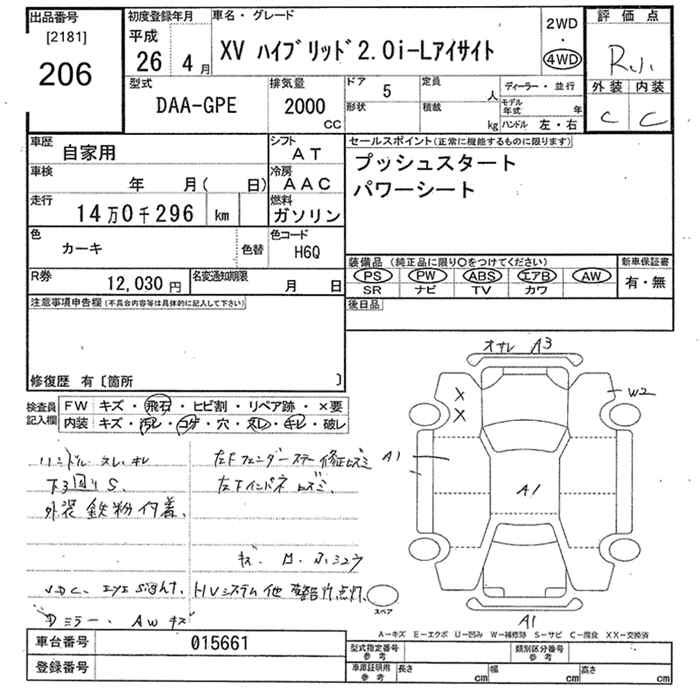 出品番号
[2181]
206
初度登録年月
平成
26年 4月
車名・グレード
XV ハイブリッド2.0i-Lアイサイト
2WD
・
4WD
評価点
R
外装 内装
C C
型式
DAA-GPE
排気量
2000
CC
ドア 5
形状
定員 人
積載 kg
ディーラー・並行
モデル年式 年
ハンドル 左・右
車歴 自家用
シフト AT
車検 年 月( 日)
冷房 AAC
走行 14万0千296 km
燃料 ガソリン
色 カーキ 色替
色コード H6Q
R券 12,030 円
名変通知期限 月 日
セールスポイント(正常に機能するものに限ります)
プッシュスタート
パワーシート
装備品 (純正品に限り○をつけてください)
新車保証書
PS PW ABS エアB AW
SR ナビ TV カワ
有・無
後日品
注意事項申告欄(不具合内容等は具体的に記入して下さい)
修復歴 有〔箇所 〕
検査員記入欄
FW キズ・飛石・ヒビ割・リペア跡・×要
内装 キズ・汚レ・コゲ・穴・スレ・キレ・破レ
ハンドル スレ キレ
下回り S.
外装 鉄粉付着.
左Fフェンダーステー修正
左Fインパネ
キズ
VDC. EyE Sight. HVシステム他 警告灯点灯.
Dミラー. AW キズ
A3
X
X
W2
A1
A1
スペア
A1
A-キズ E-エクボ U-凹み W-補修跡 S-サビ C-腐食 XX-交換済
車台番号 015661
登録番号
型式指定番号 参考
類別区分番号 参考
車庫証明用 参考
長さ cm
幅 cm
高さ cm